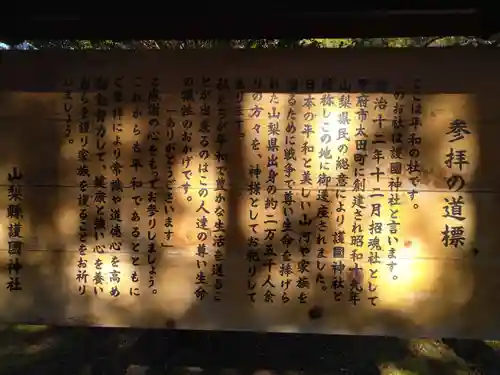 参拝の道標
ここは平和の社です。
このお社は護國神社と言います。
明治十二年十二月招魂社として
甲府市太田町に創建され昭和十九年
山梨県民の総意により護國神社と
改称しこの地に御遷座されました。
日本の平和と美しい山河や家族を
護るために戦争で尊い生命を捧げら
れた山梨県出身の約二万五千人余
りの方々を、神様としてお祀りして
あります。
私たちが平和で豊かな生活を送るこ
とが出来るのはこの人達の尊い生命
の犠牲のおかげです。
「ありがとうございます」
と感謝の心をもってお参りしましょう。
これからも平和であるとともに
ご参拝により常識や道徳心を高め
勉を努力して、健康と強い心を養い
自らを護り家族を護ることをお祈り
しましょう。
山梨縣護國神社